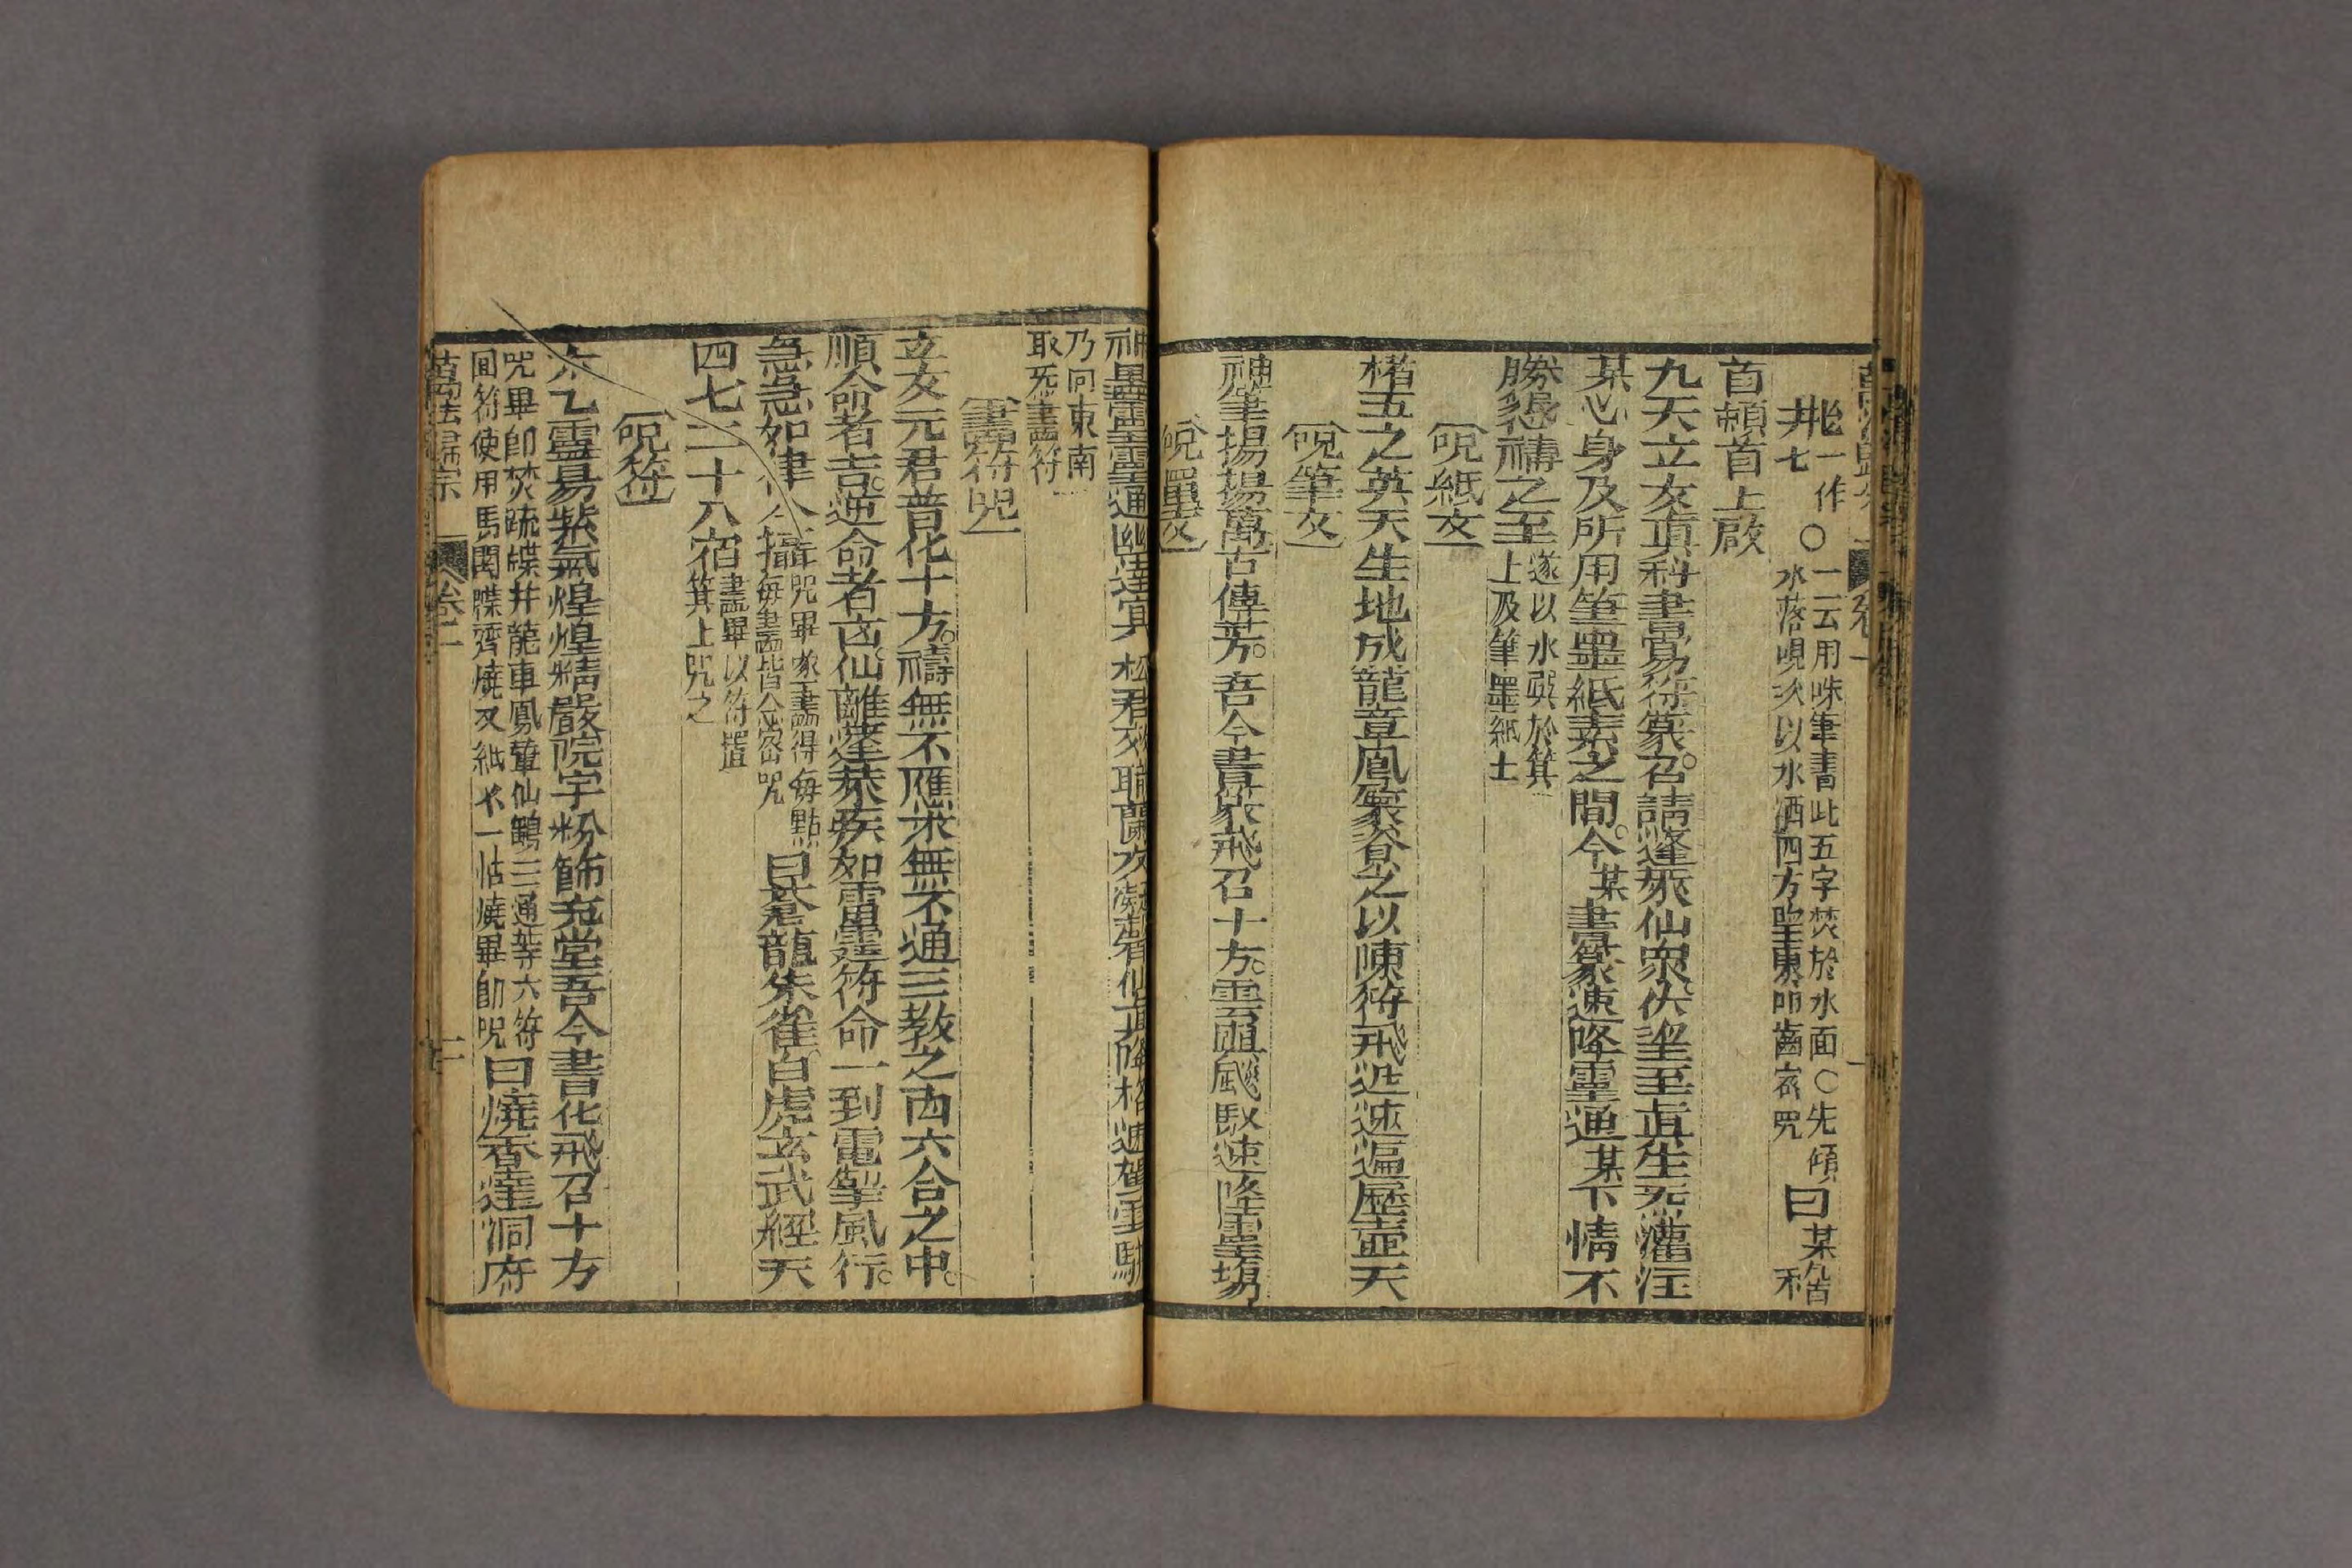 一作 〇一云用咮筆書此五字焚於水面〇先傾
井七 水落硯次以水洒四方望東叩齒密咒 曰某稽
首頓首上啟
九天立女真科書昜符篆召請蓬萊仙衆伏望至真生炁灌注
某心身及所用筆墨紙素之間今某書篆速降靈通某下情不
勝懇禱之至遂以水噀於箕
上及筆墨紙士
〔呪紙文〕
楮五之英天生地成龍章鳳篆資之以陳符飛迅速遍歷壺天
〔呪筆文〕
神筆揚揚萬古傳芳吾今書篆飛召十方雲颿馭速降靈塲
〔呪墨文〕
神墨靈靈通幽達冥松君效職蘭友凝馨仙真降格速駕雲軿
乃向東南
取炁書符
〔書符咒〕
立女元君普化十方禱無不應求無不通三教之內六合之中
順命者吉逆命者凶仙離蓬萊疾如雷霆符命一到電掣風行
急急如律令攝咒畢遂書得每點
每畫皆念密咒 曰蒼龍朱雀白虎玄武經天
四七二十八宿書畢以符置
箕上咒之
〔呪符〕
六乙靈昜紫氣煌煌精嚴院宇粉飾充堂吾今書化飛召十方
咒畢即焚疏牒井龍車鳳輦仙鶴三通等六符
圓符使用馬関牒齊燒又紙衣一帖燒畢即咒 曰燒香達洞府
萬法歸宗 卷二 二